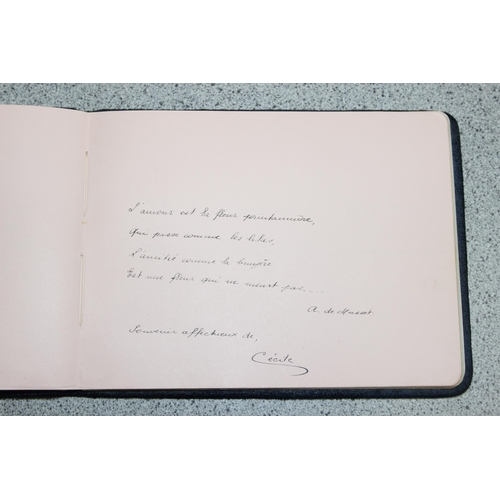 L'amour est la fleur printannière,
Qui passe comme les lilas,
L'amitié comme la lumière
Est une fleur qui ne meurt pas....
A. de Musset
Souvenir affectueux de,
Cécile